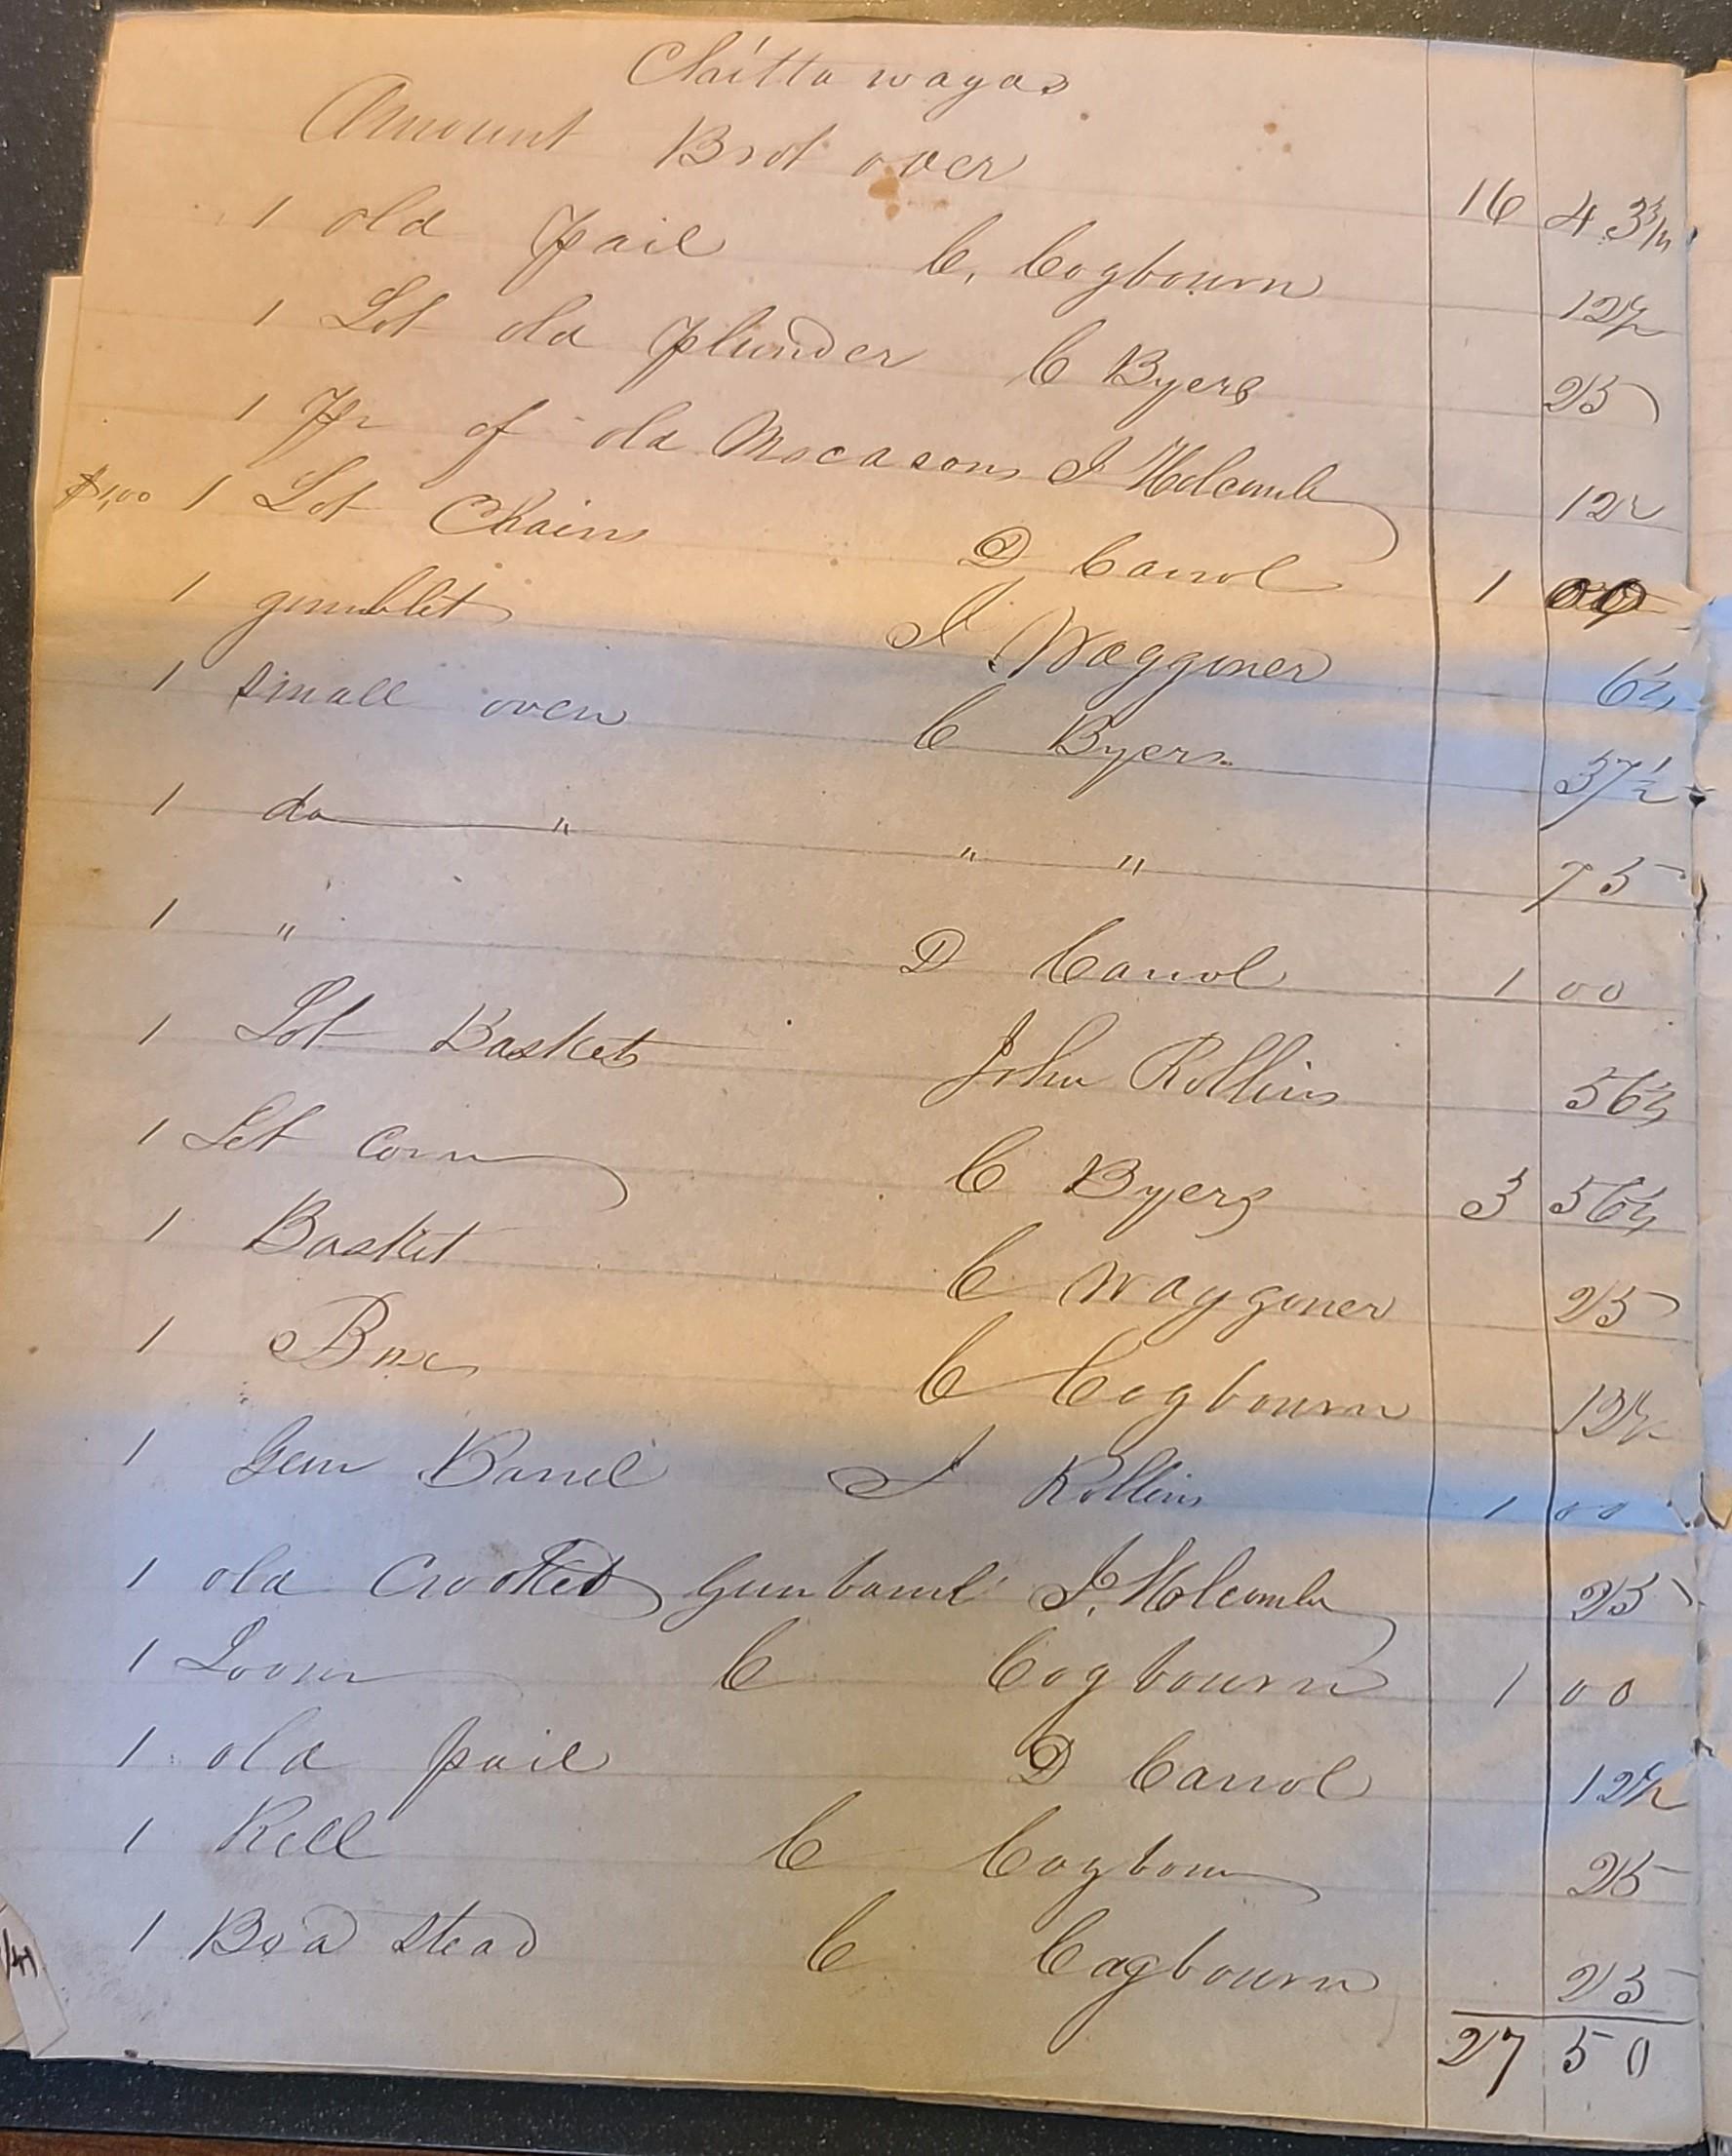 Chitta wayas
Amount Brot over 16 43 3/4
1 old pail C. Cogbourn 12 1/2
1 Lot old plunder C Byers 25
1 Pr of old Mocasons J Holcomb 12 1/2
$1,00 1 Lot Chains D Carrol 1 00
1 gimblet J Waggoner 6 1/4
1 small oven C Byers 37 1/2
1 do " " " 75
1 " D Carrol 1 00
1 Lot Baskets John Rollins 56 1/4
1 Lot corn C Byers 3 56 1/4
1 Basket C Waggoner 25
1 Box C Cogbourn 12 1/2
1 Gun Barrel J Rollins 1 00
1 old Crooked Gunbarrel J. Holcomb 25
1 Loom C Cogbourn 1 00
1 old pail D Carrol 12 1/2
1 Rell C Cogbourn 25
1 Bed stead C Cagbourn 25
27 50